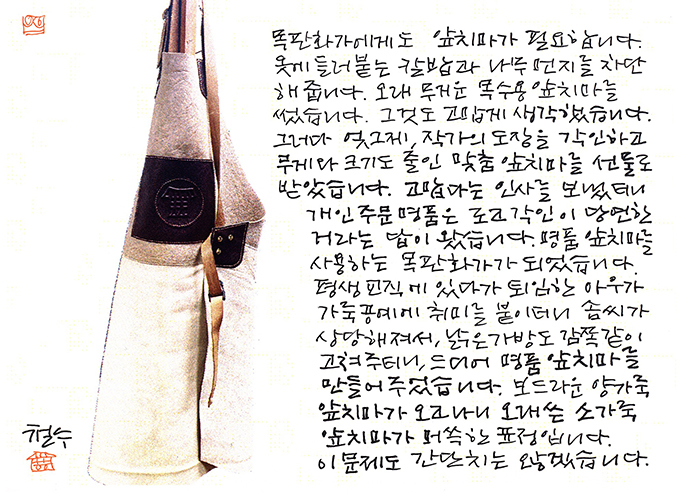 목판화가에게도 앞치마가 필요합니다.
옷에 들러붙는 칼밥과 나무 먼지를 차단
해 줍니다. 오래 무거운 목수용 앞치마를
썼습니다. 그것도 고맙게 생각했습니다.
그러다 엊그제, 작가의 도장을 각인하고
무게와 크기도 줄인 맞춤 앞치마를 선물로
받았습니다. 고맙다는 인사를 보냈더니
개인 주문 명품은 로고 각인이 당연한
거라는 답이 왔습니다. 명품 앞치마를
사용하는 목판화가가 되었습니다.
평생 교직에 있다가 퇴임한 아우가
가죽공예에 취미를 붙이더니 솜씨가
상당해져서, 낡은 가방도 감쪽같이
고쳐주더니, 드디어 명품 앞치마를
만들어 주었습니다. 보드라운 양가죽
앞치마가 오고나니 오래쓴 소가죽
앞치마가 머쓱한 표정입니다.
이 문제도 간단치는 않겠습니다.
철수